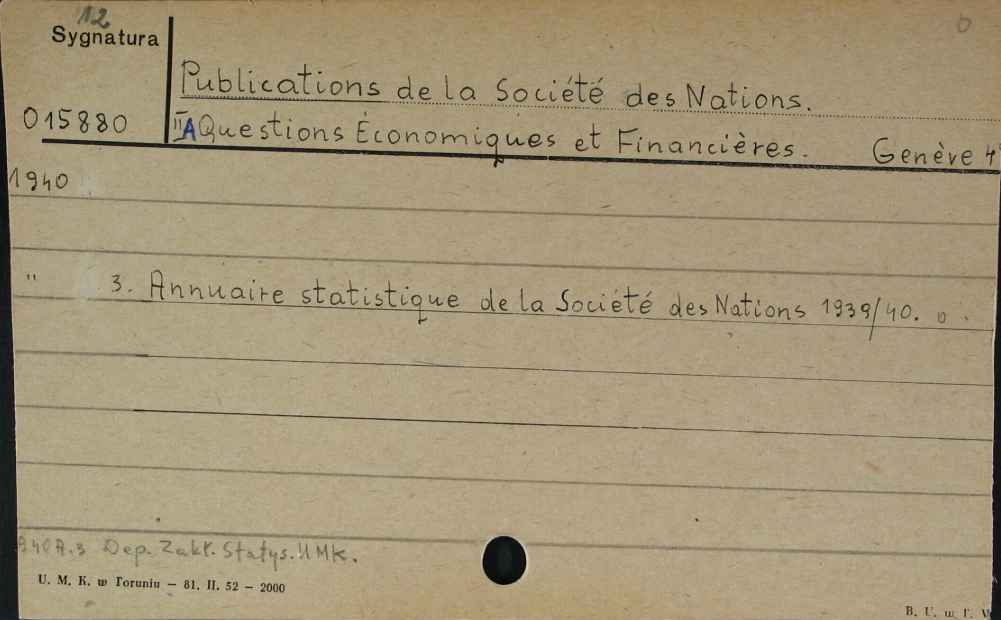 12
Sygnatura
Publications de la Société des Nations.
015880
II A Questions Économiques et Financières. Genève 4°
1940
" 3. Annuaire statistique de la Société des Nations 1939/40.
Dep. Zakł. Statys. UMK.
U. M. K. w Toruniu — 81. II. 52 — 2000
B. U. w T.